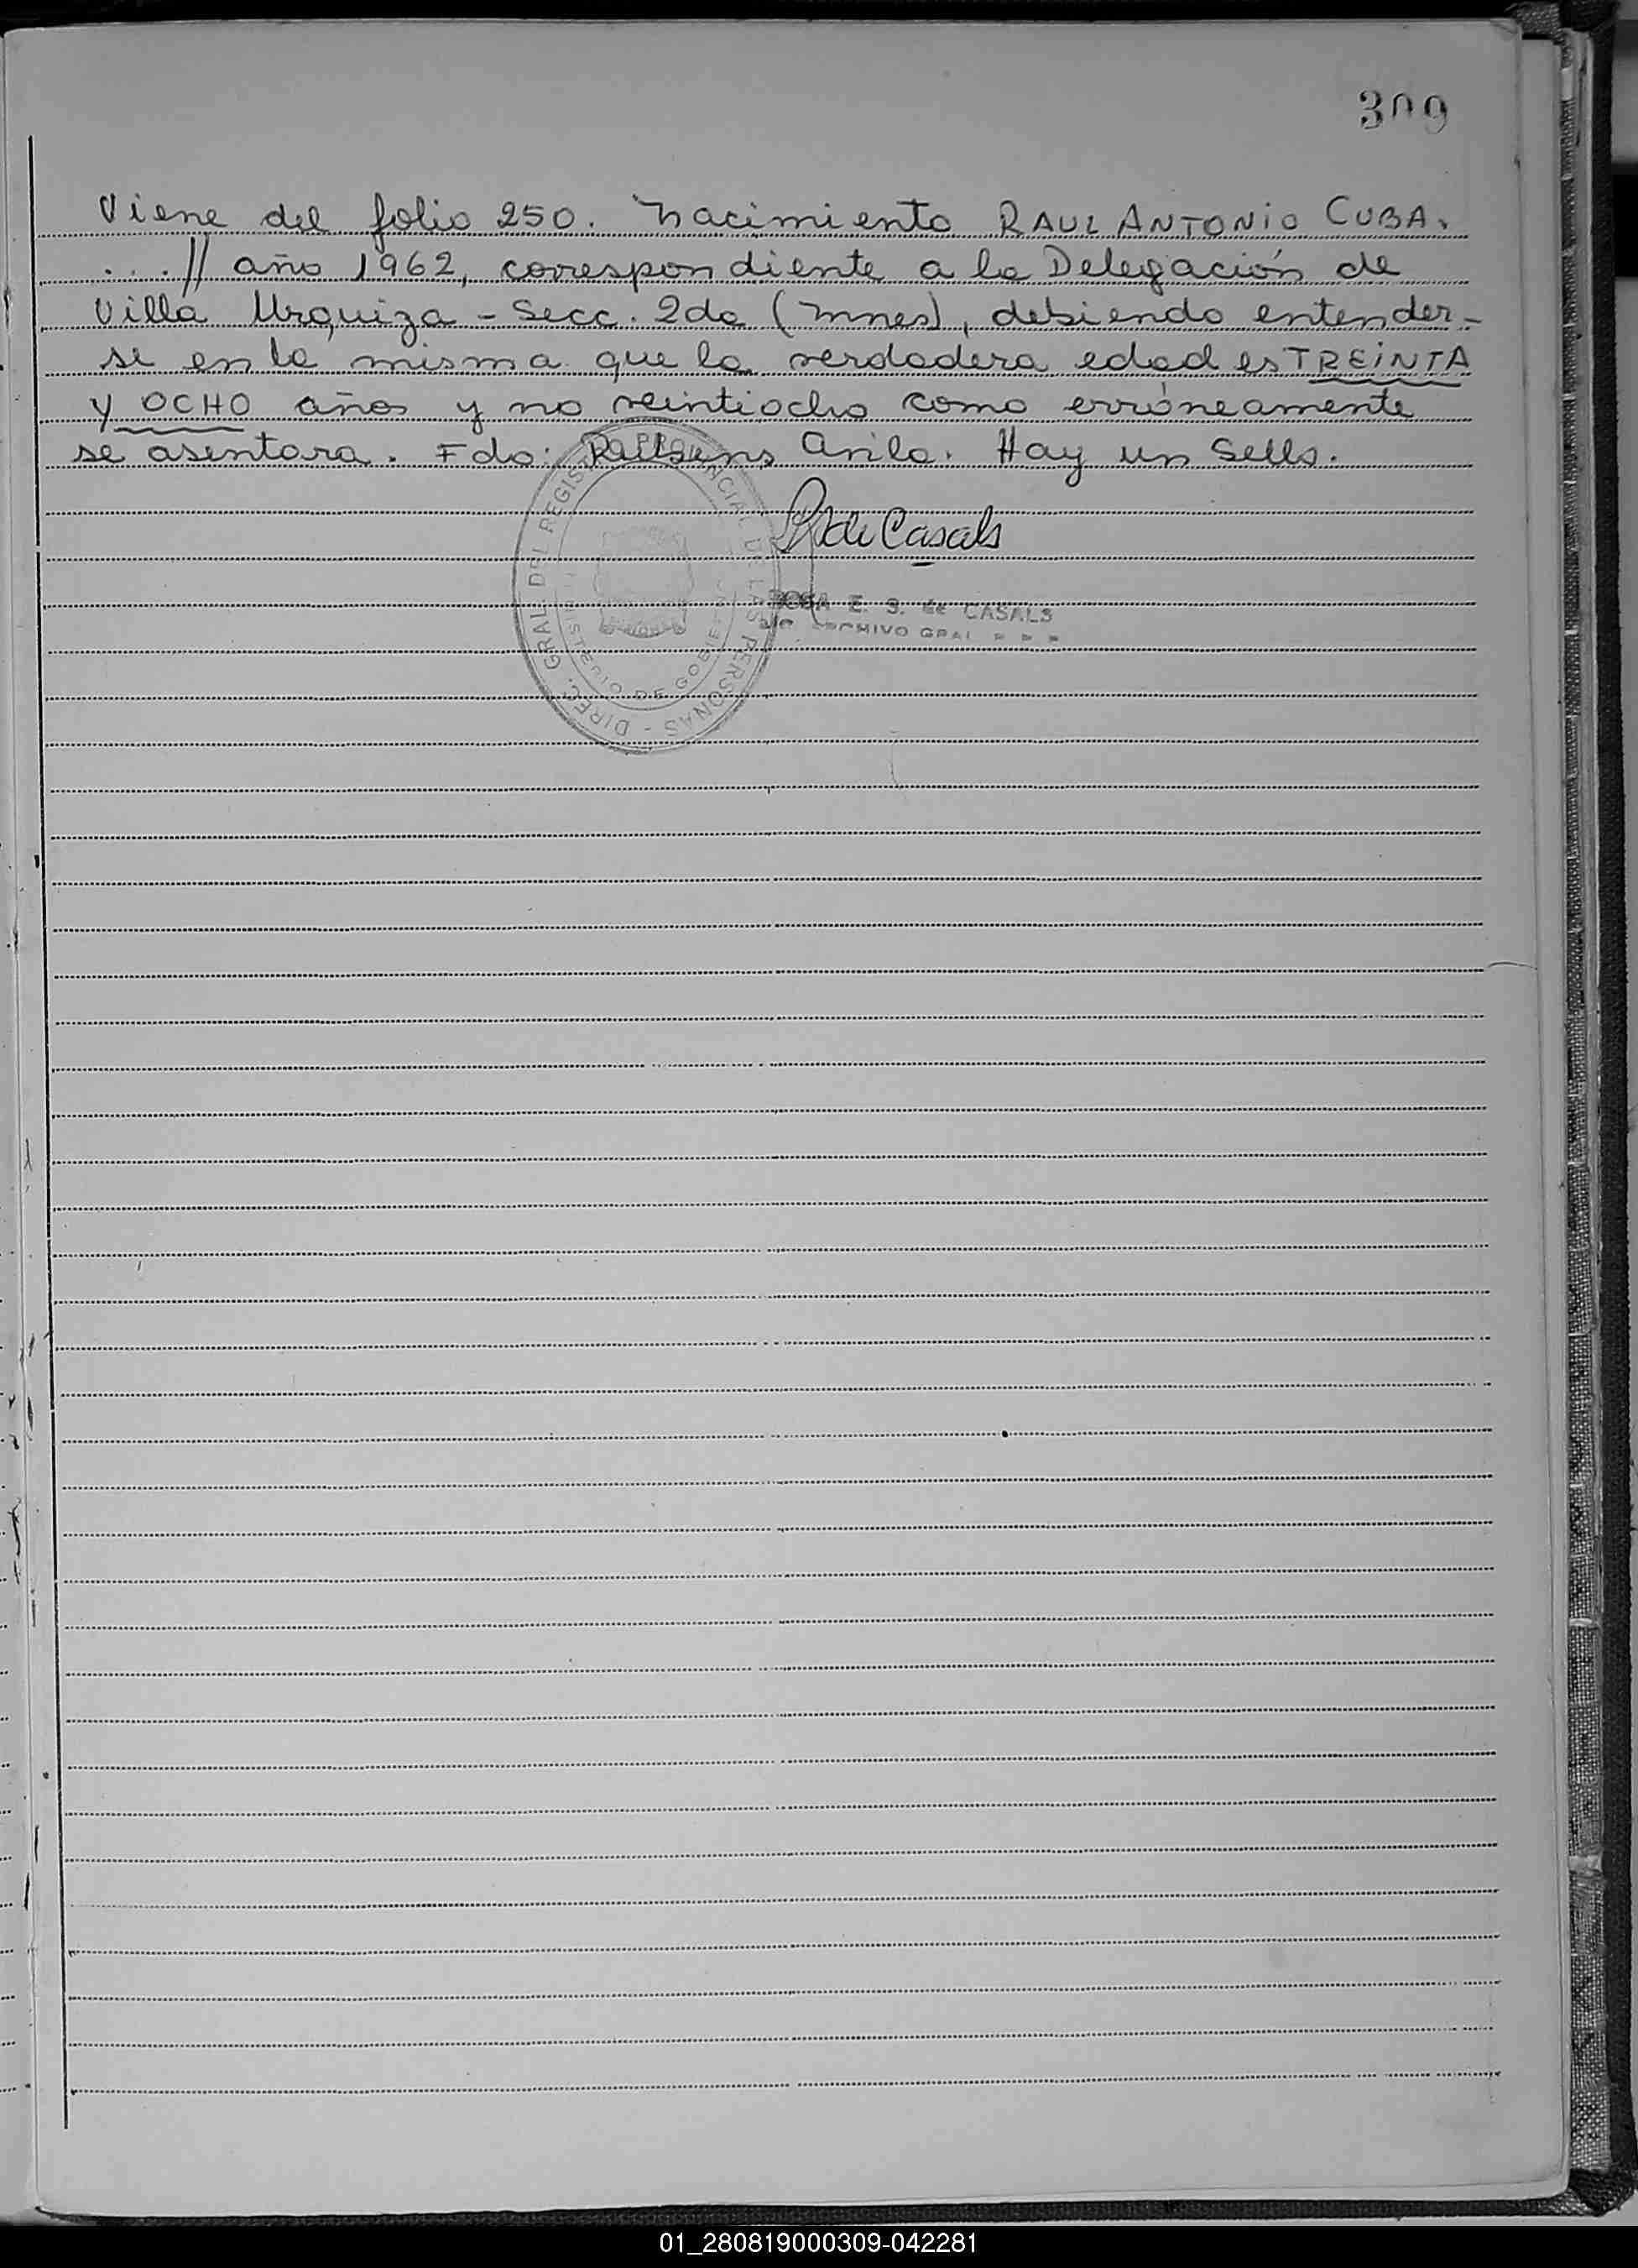 309
Viene del folio 250. Nacimiento RAUL ANTONIO CUBA.
...// año 1962, correspondiente a la Delegación de
Villa Urquiza - Secc. 2da (mnes), debiendo entender-
se en la misma que la verdadera edad es TREINTA
Y OCHO años y no veintiocho como erróneamente
se asentara. Fdo: Avila. Hay un Sello.
de Casals
DIREC. GRAL. DEL REGISTRO PROVINCIAL DE LAS PERSONAS -
MINISTERIO DE GOBIERNO
ROSA E. S. de CASALS
ARCHIVO GRAL
01_280819000309-042281